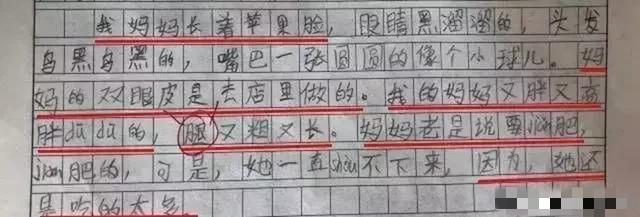 我妈妈长着苹果脸，眼睛黑溜溜的，头发
乌黑乌黑的，嘴巴一张圆圆的像个小球儿。妈
妈的双眼皮是，去店里做的。我的妈妈又胖又高
胖dū dū的，腿又粗又长。妈妈老是说要jiǎn肥，
jiǎn肥的，可是，她一直shòu不下来，因为，她还
是吃的太多。